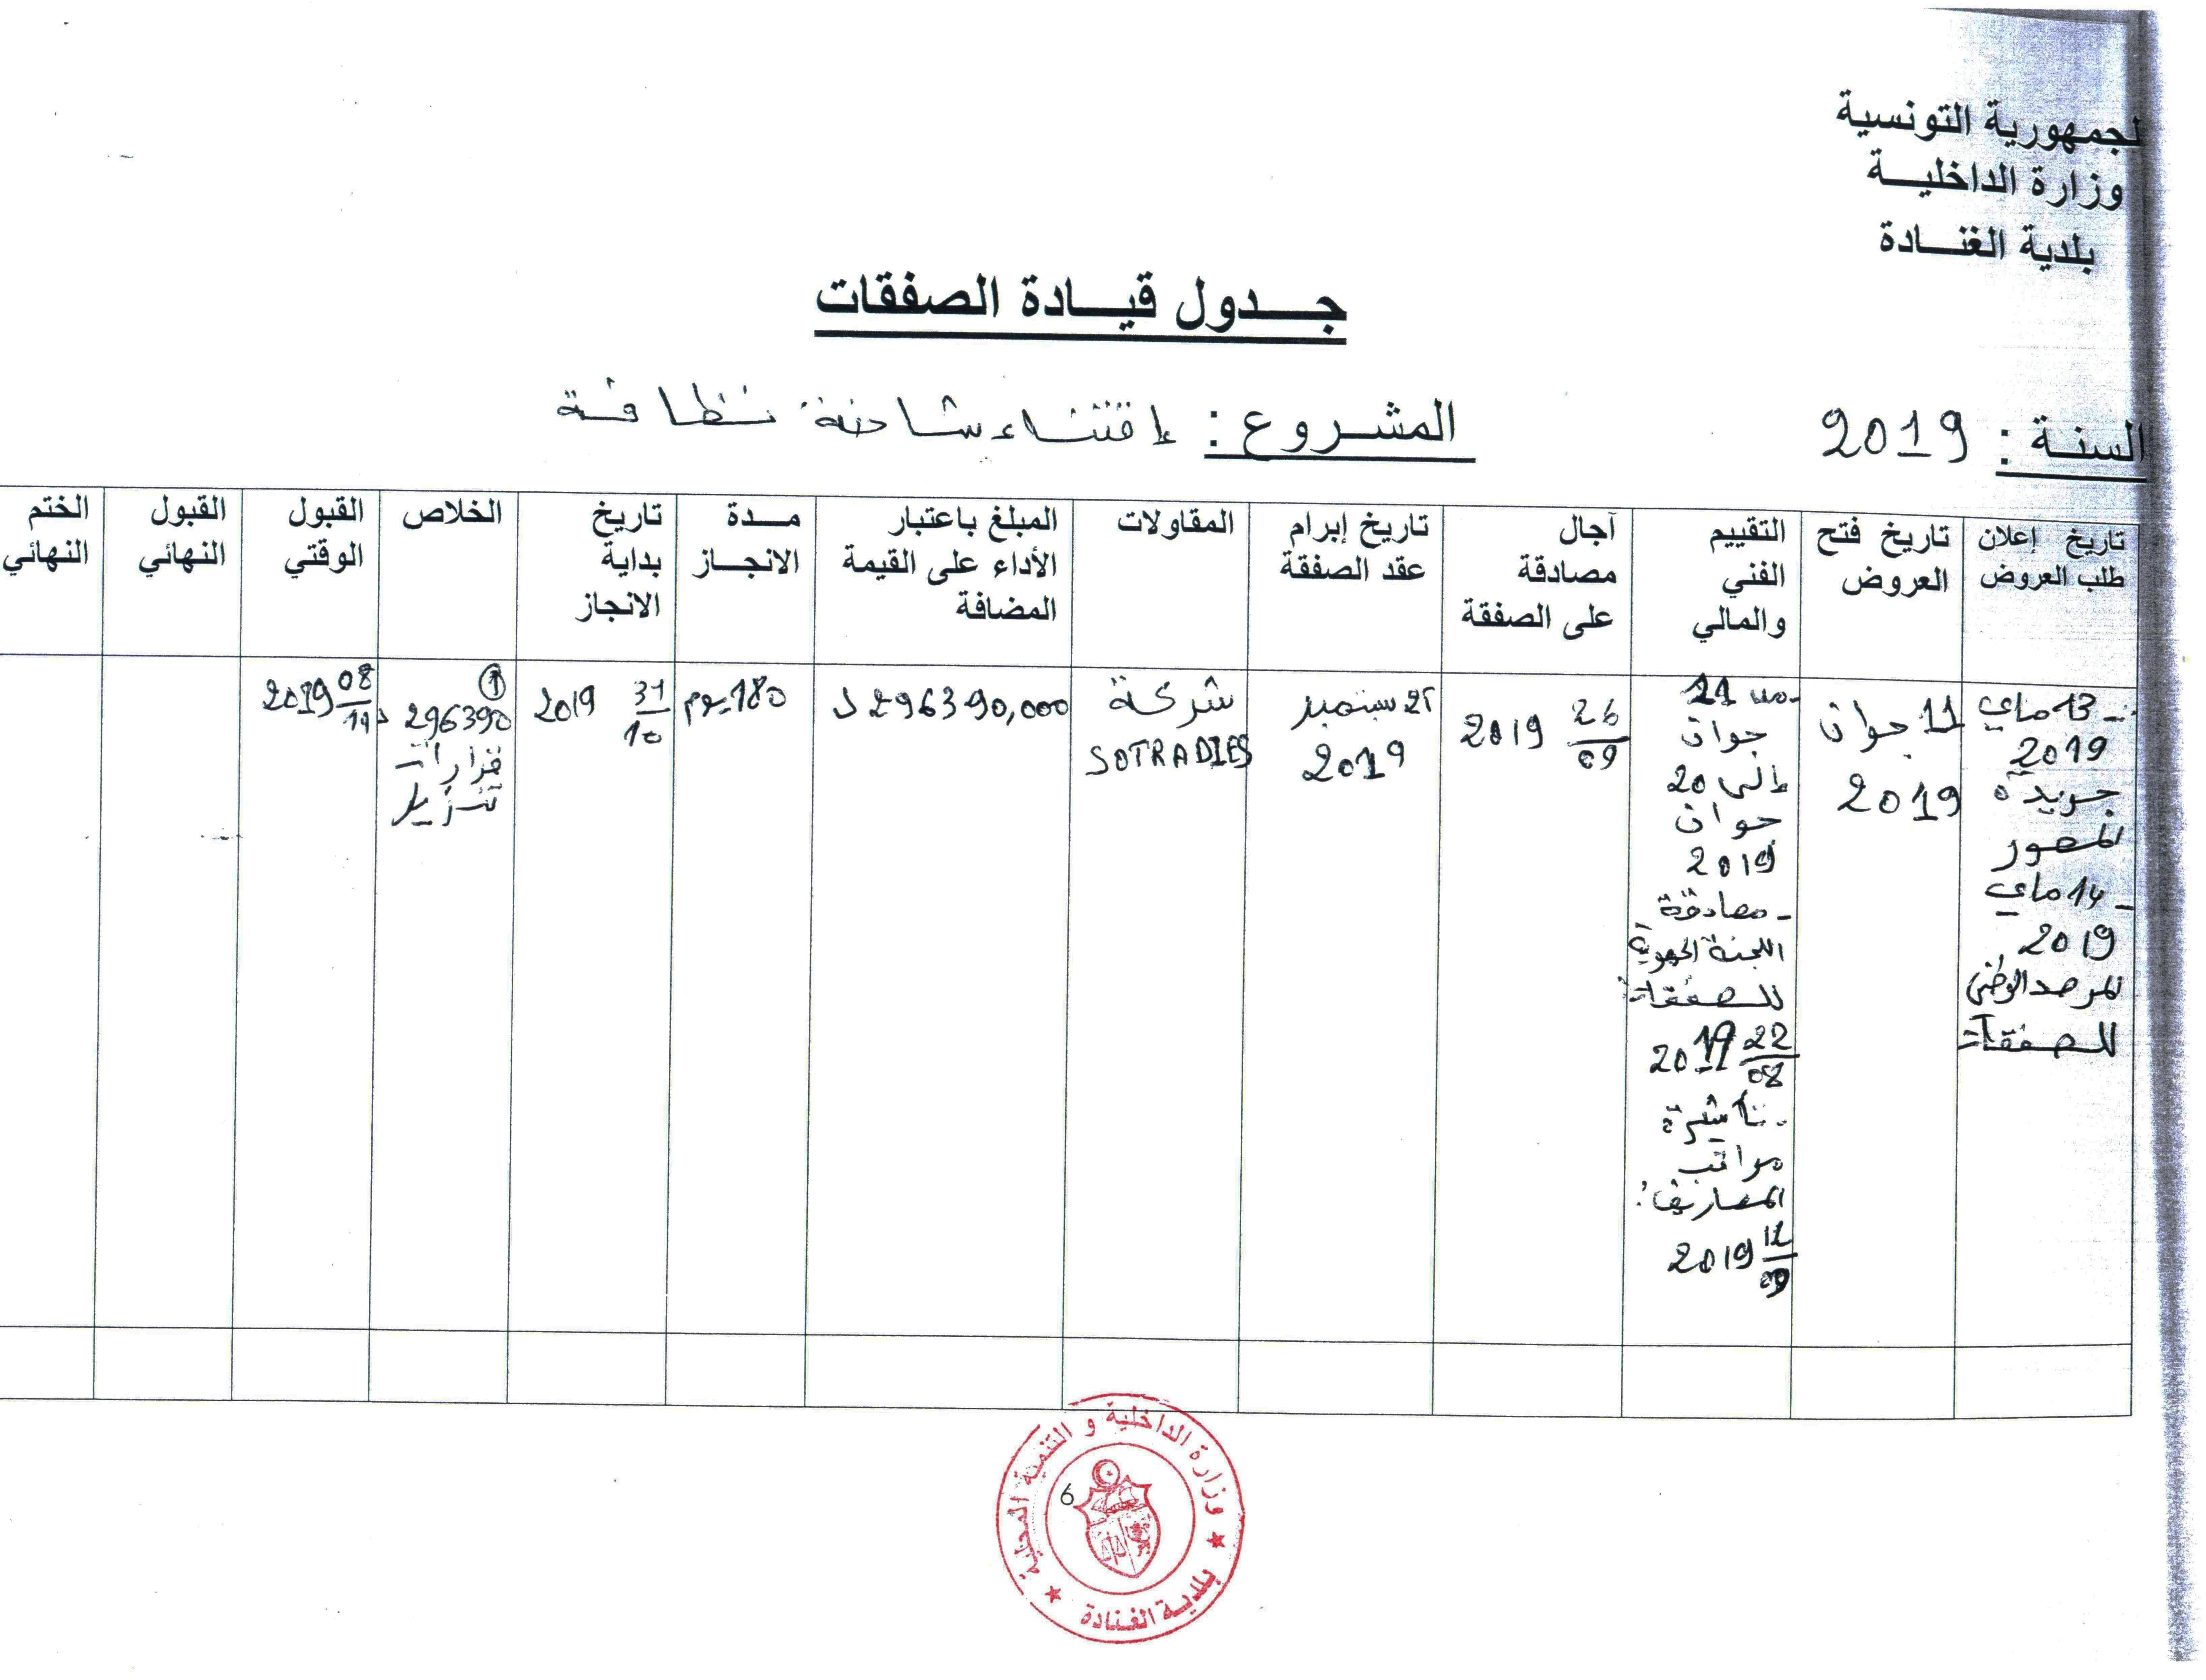 لجمهورية التونسية
وزارة الداخليـــة
بلدية الغنـــادة
جـــدول قيـــادة الصفقات
السنـة : 2019
المشـروع : اقتناء شاحنة نظافة
تاريخ إعلان
طلب العروض
تاريخ فتح
العروض
التقييم
الفني
والمالي
آجال
مصادقة
على الصفقة
تاريخ إبرام
عقد الصفقة
المقاولات
المبلغ باعتبار
الأداء على القيمة
المضافة
مـــدة
الانجـــاز
تاريخ
بداية
الانجاز
الخلاص
القبول
الوقتي
القبول
النهائي
الختم
النهائي
- 13 ماي
2019
جريدة
- 14 ماي
2019
المرصد الوطني
للصفقات
11 جوان
2019
من 11
جوان
إلى 20
جوان
2019
- مصادقة
اللجنة الجهوية
للصفقات
22/08 2019
- تأشيرة
مراقب
المصاريف:
12/09 2019
26/09 2019
سبتمبر
2019
شركة
SOTRADIES
296390,000 د
180 يوم
31/10 2019
①
296390 د
قرارات
تنزيل
08/11 2019
وزارة الداخلية و التنمية المحلية
بلدية الغنادة
6